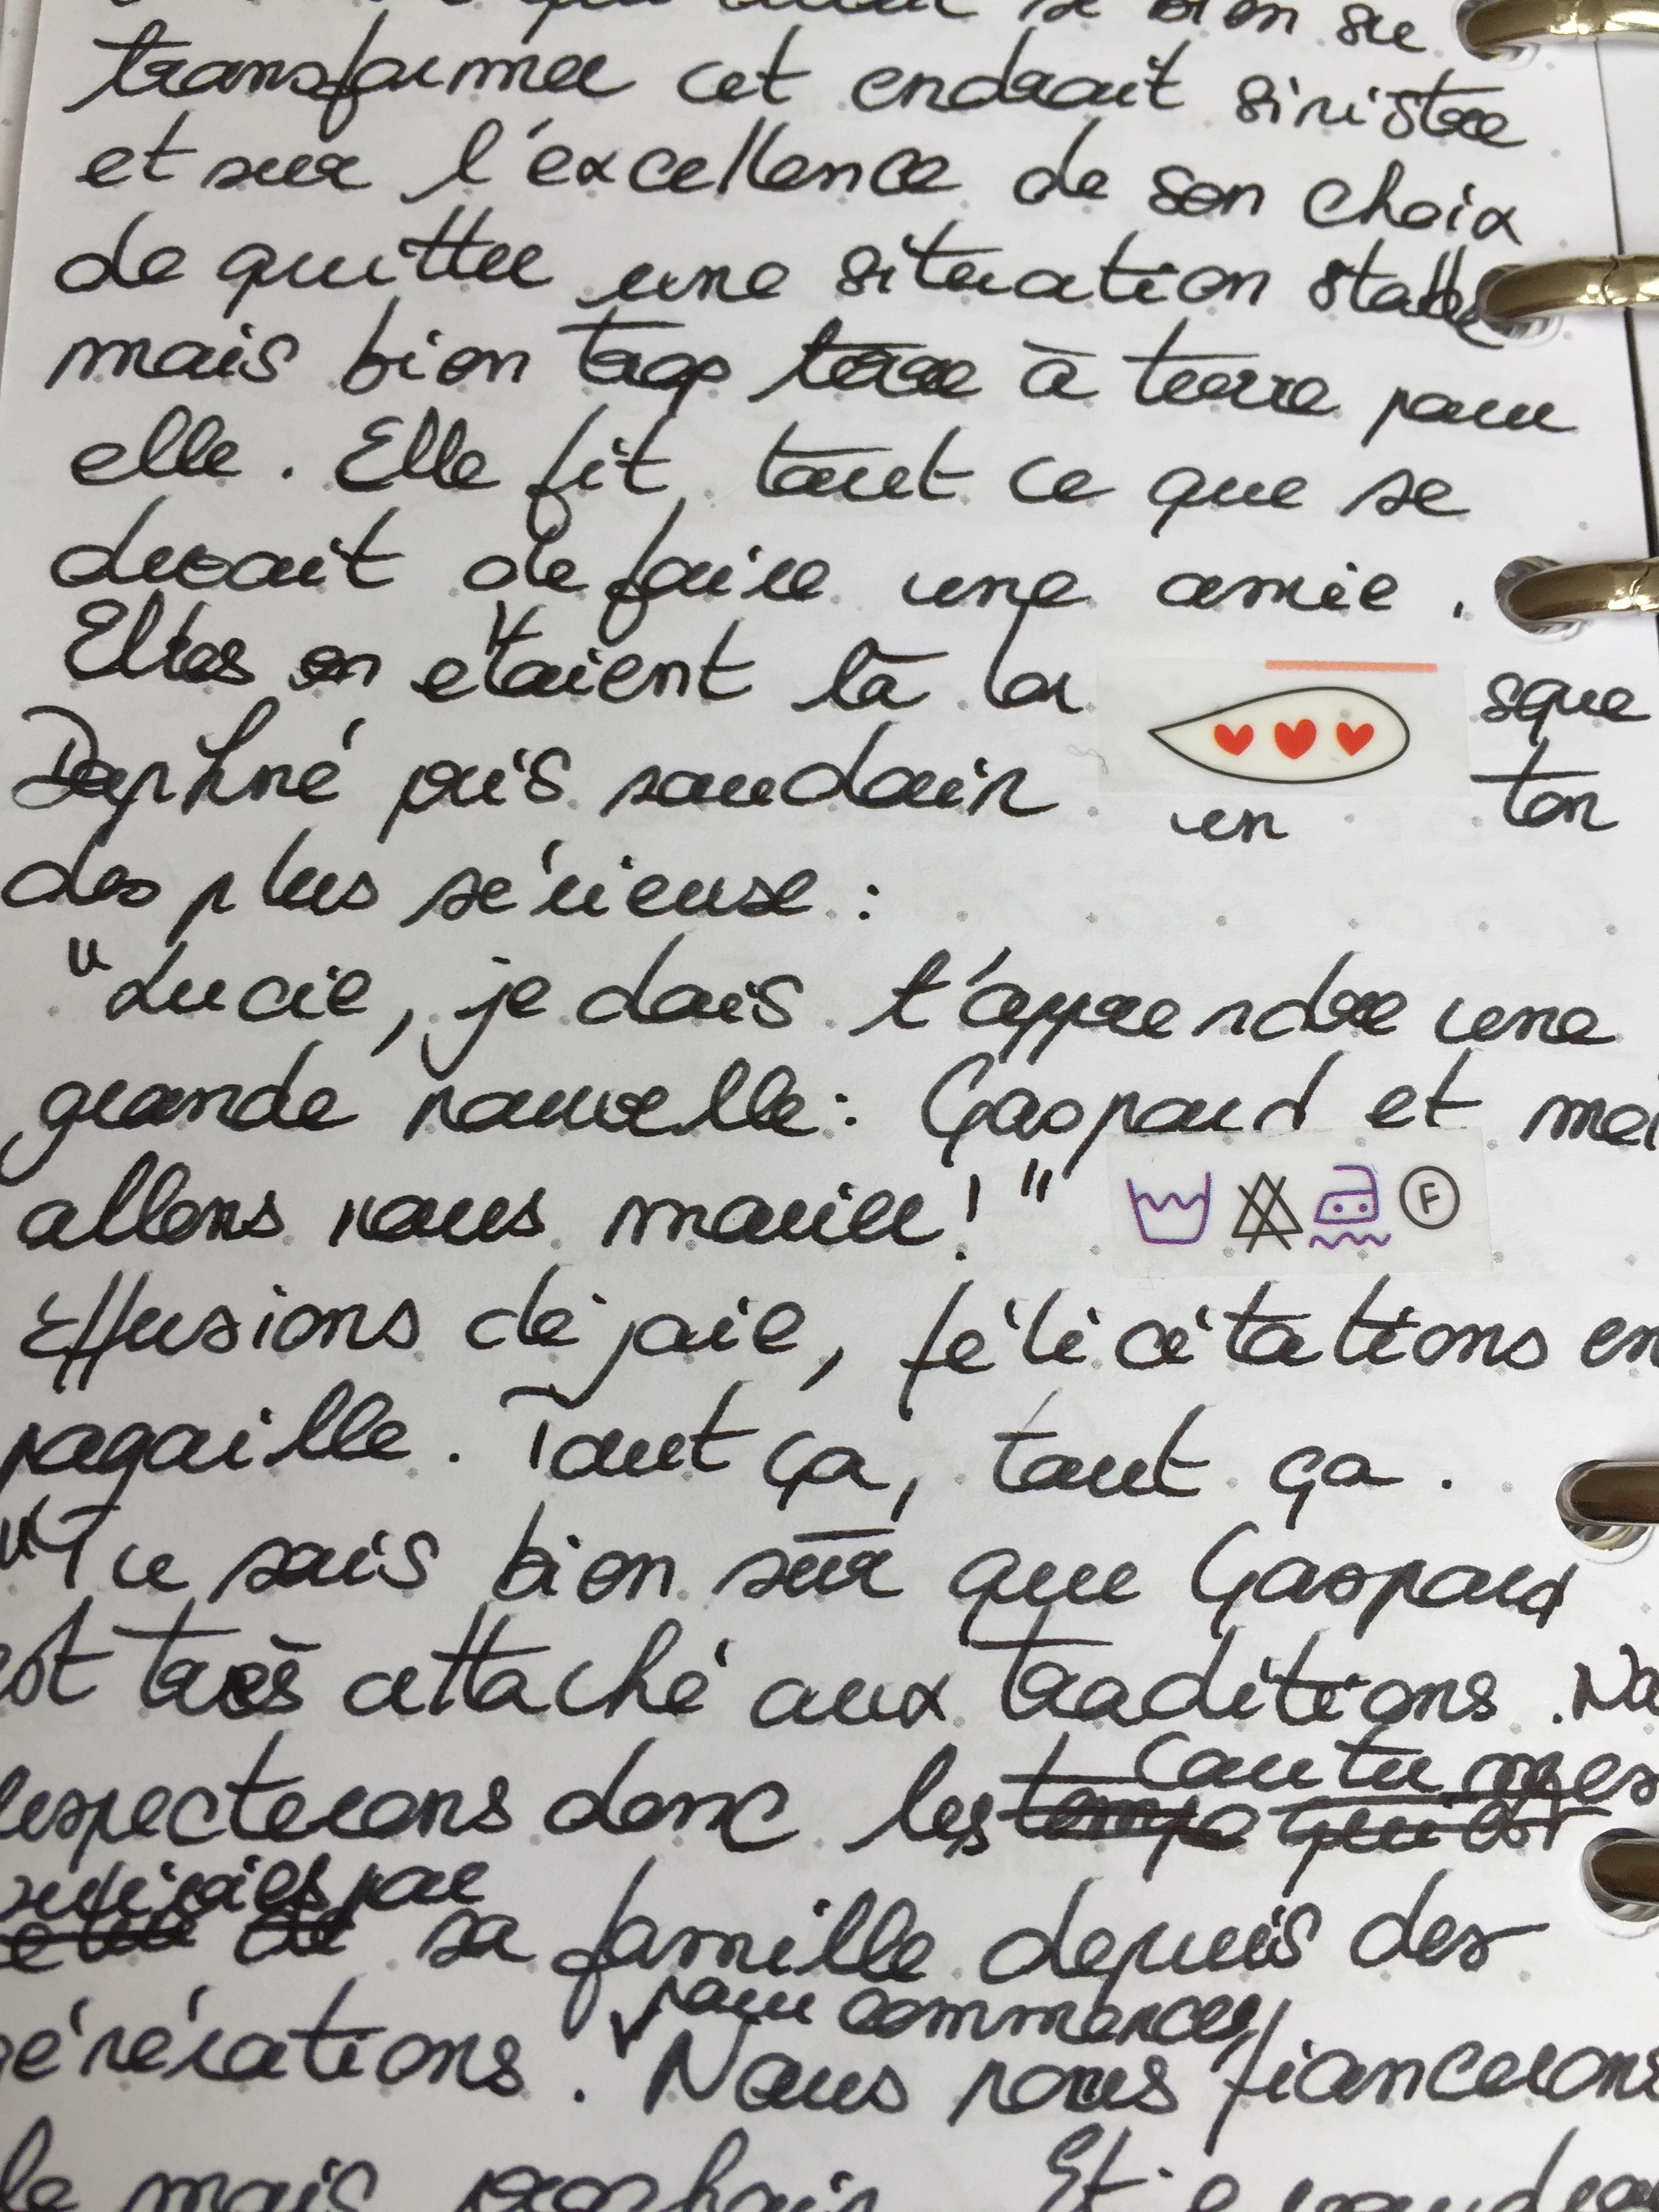 si bien su
transformer cet endroit sinistre
et sur l'excellence de son choix
de quitter une situation stable
mais bien trop terre à terre pour
elle. Elle fit tout ce que se
devait de faire une amie.
Elles en étaient là lorsque
Daphné pris soudain un ton
des plus sérieuse :
"Lucie, je dois t'apprendre une
grande nouvelle : Gaspard et moi
allons nous marier ! "
F
Effusions de joie, félicitations en
pagaille. Tout ça, tout ça.
"Tu sais bien sûr que Gaspard
est très attaché aux traditions. No
coutumes
respecterons donc les temps qui est
par
sa famille depuis des
pour commencer,
générations. Nous nous fiancerons
le mois prochain. Et